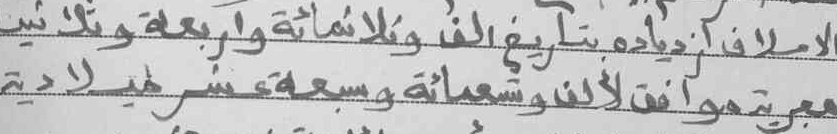 الاملاف ازدياده بتاريخ الف وثلاثمائة واربعة وثلاثين
هجرية موافق لألف وتسعمائة وسبعة عشر ميلادية